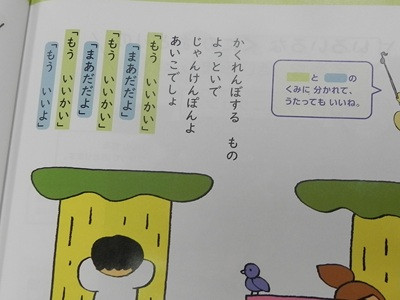 かくれんぼする　もの
よっといで
じゃんけんぽんよ
あいこでしょ
「もう　いいかい」
「まあだだよ」
「もう　いいかい」
「まあだだよ」
「もう　いいかい」
「もう　いいよ」
と　の
くみに 分かれて、
うたっても いいね。